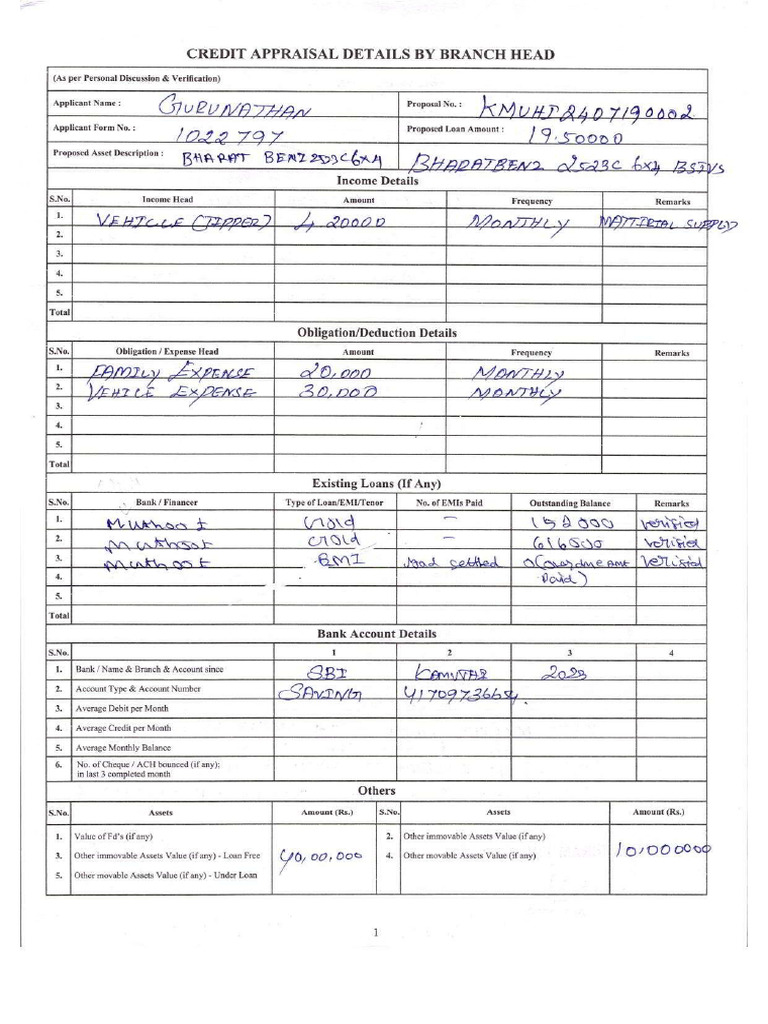 CREDIT APPRAISAL DETAILS BY BRANCH HEAD
(As per Personal Discussion & Verification)
Applicant Name : GURUNATHAN Proposal No. : KMUHT2407190002
Applicant Form No. : 1022797 Proposed Loan Amount : 19.50000
Proposed Asset Description : BHARAT BENZ 2523C 6x4 BHARATBENZ 2523C 6x4 BSIVS
Income Details
S.No. Income Head Amount Frequency Remarks
1. VEHICLE (TIPPER) 4 20000 MONTHLY MATTIRIAL SUPPLY
2.
3.
4.
5.
Total
Obligation/Deduction Details
S.No. Obligation / Expense Head Amount Frequency Remarks
1. FAMILY EXPENSE 20,000 MONTHLY
2. VEHICE EXPENSE 30,000 MONTHLY
3.
4.
5.
Total
Existing Loans (If Any)
S.No. Bank / Financer Type of Loan/EMI/Tenor No. of EMIs Paid Outstanding Balance Remarks
1. Muthoot Gold - 152000 verified
2. Muthoot Gold - 616500 verified
3. Muthoot EMI settled 0 (Overdue Amt verified
4. Paid)
5.
Total
Bank Account Details
S.No. 1 2 3 4
1. Bank / Name & Branch & Account since SBI 2023
2. Account Type & Account Number SAVING 41709736654.
3. Average Debit per Month
4. Average Credit per Month
5. Average Monthly Balance
6. No. of Cheque / ACH bounced (if any);
in last 3 completed month
Others
S.No. Assets Amount (Rs.) S.No. Assets Amount (Rs.)
1. Value of Fd's (if any) 2. Other immovable Assets Value (if any)
3. Other immovable Assets Value (if any) - Loan Free 40,00,000 4. Other movable Assets Value (if any) 10,000000
5. Other movable Assets Value (if any) - Under Loan
1